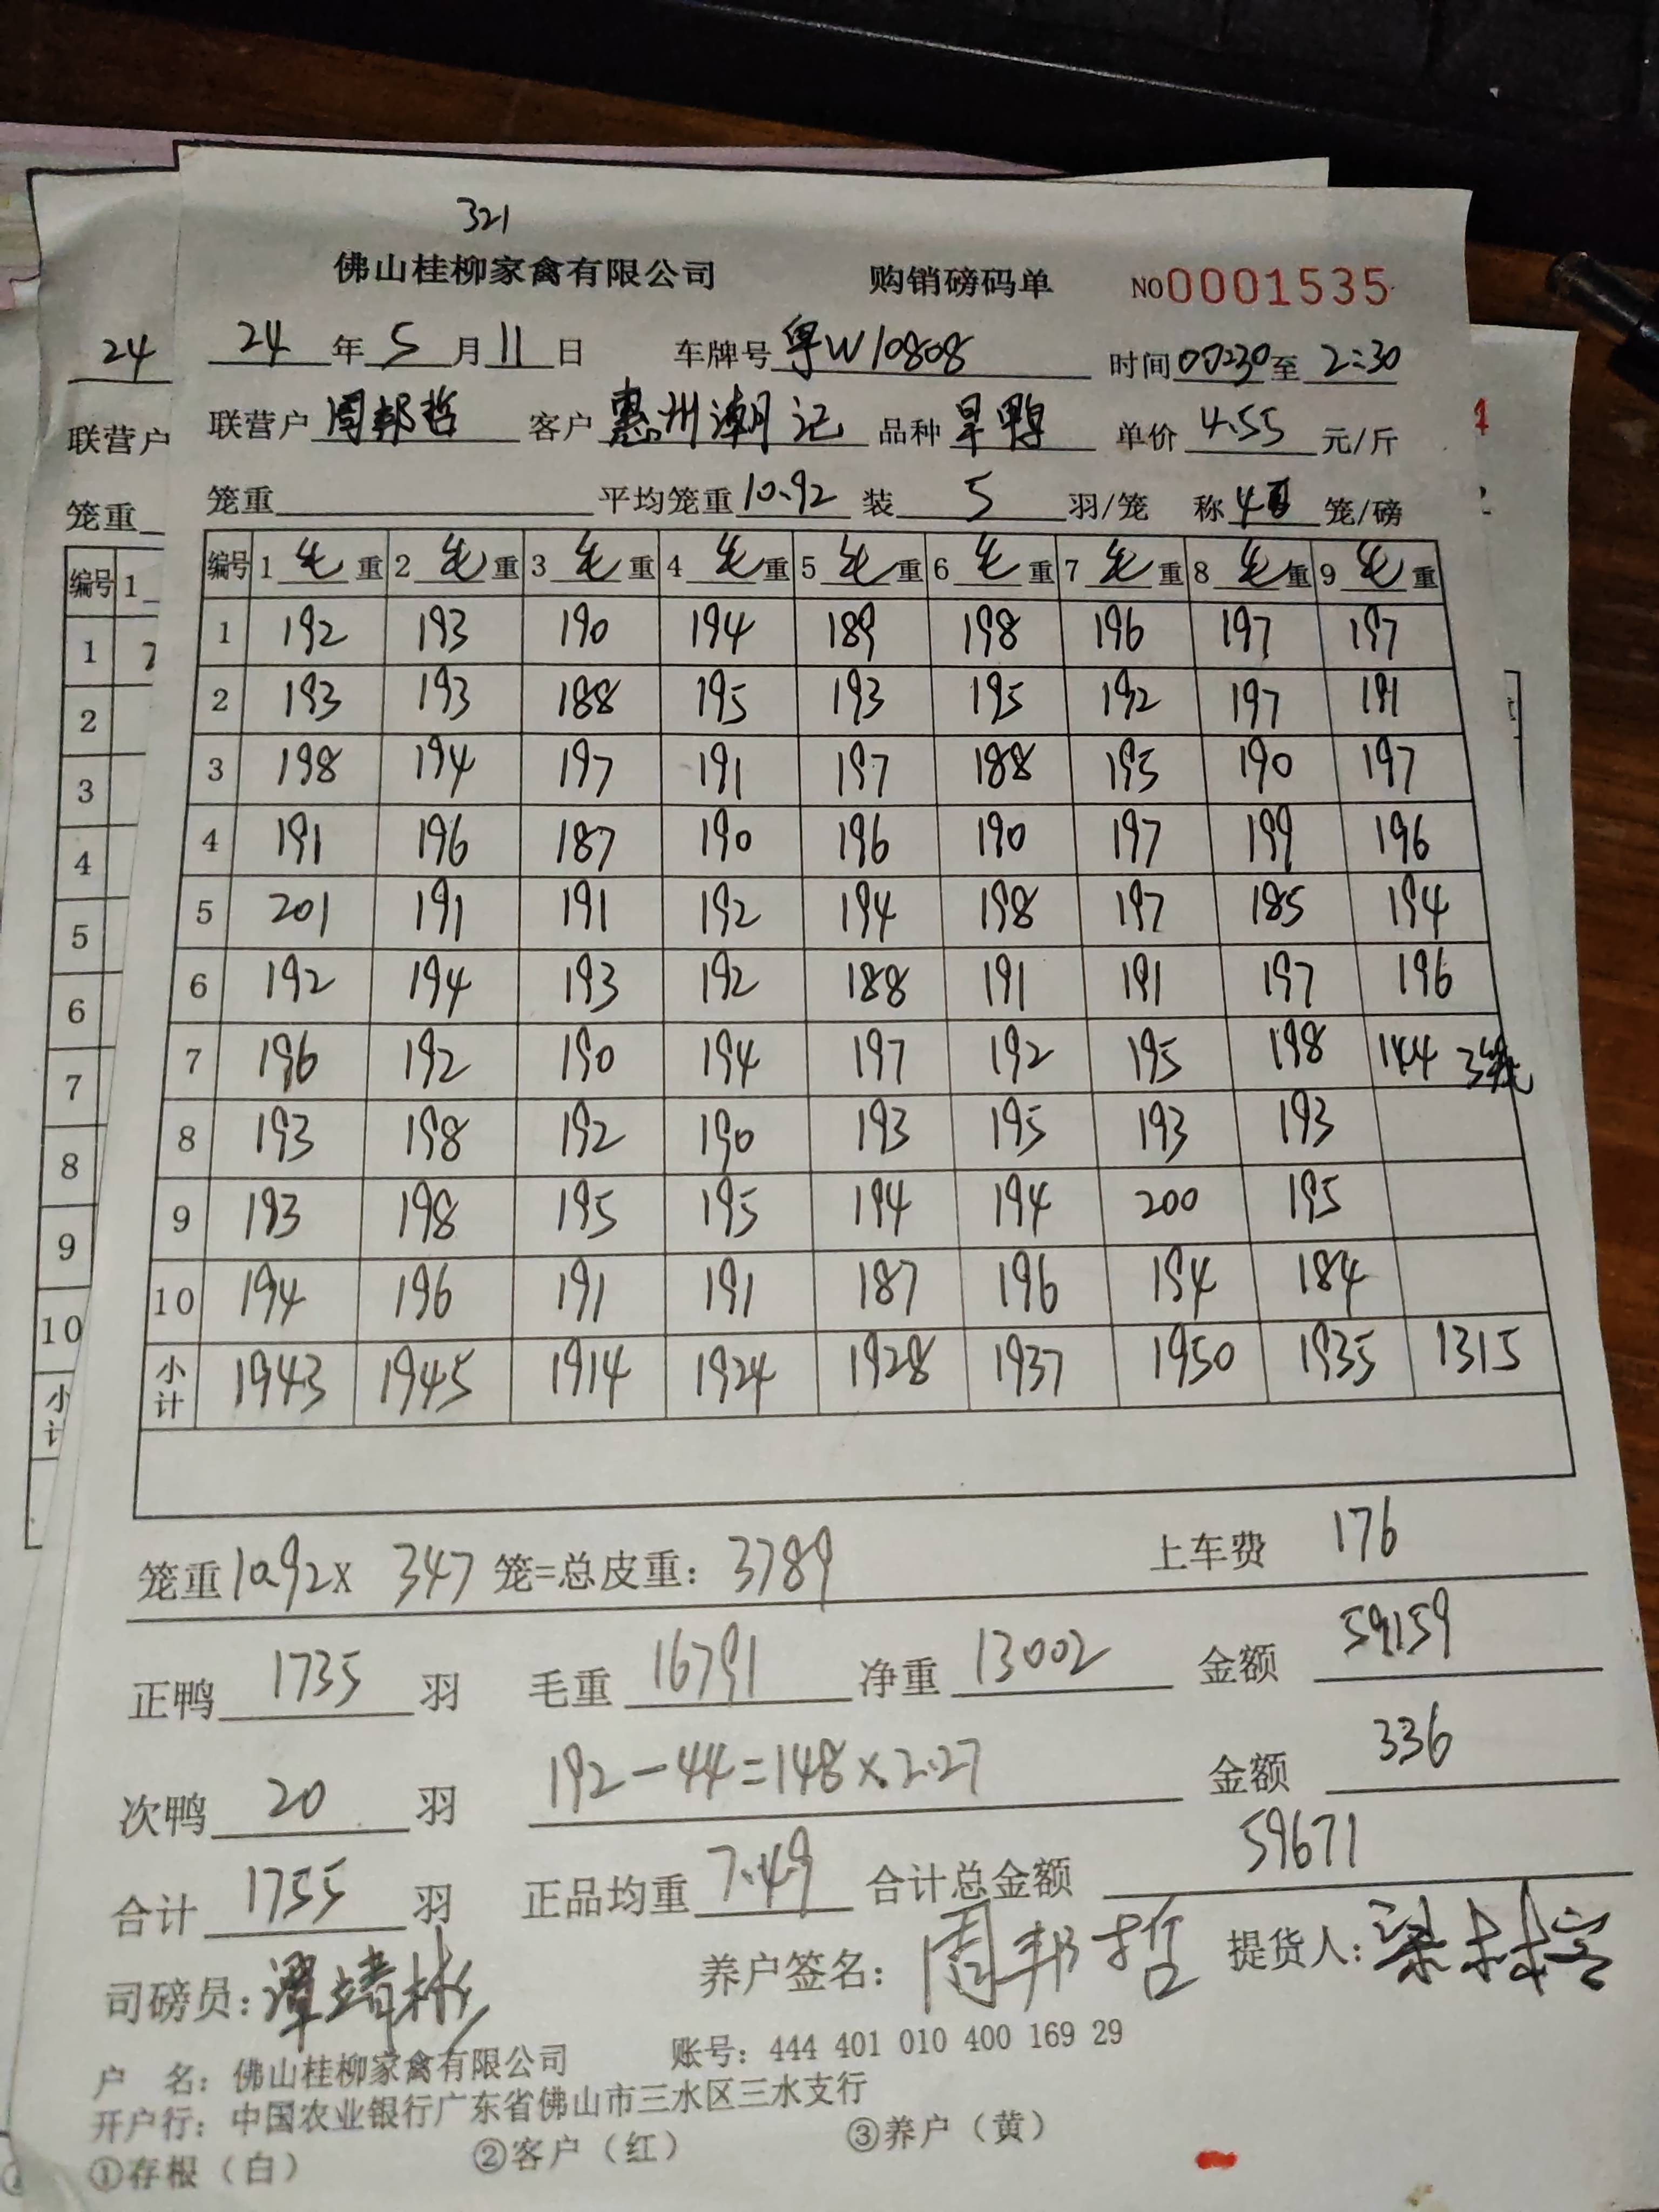 321
佛山桂柳家禽有限公司 购销磅码单 NO0001535
24年5月11日 车牌号粤W10808 时间00:30至2:30
联营户周邦哲 客户惠州潮记 品种旱鸭 单价4.55元/斤
笼重 平均笼重10.92装5羽/笼 称4笼/磅
编号 1毛重 2毛重 3毛重 4毛重 5毛重 6毛重 7毛重 8毛重 9毛重
1 192 193 190 194 189 198 196 197 197
2 193 193 188 195 193 195 192 197 191
3 198 194 197 191 197 188 195 190 197
4 191 196 187 190 196 190 197 199 196
5 201 191 191 192 194 198 197 185 194
6 192 194 193 192 188 191 191 197 196
7 196 192 190 194 197 192 195 198 144 3笼
8 193 198 192 190 193 195 193 193
9 193 198 195 195 194 194 200 195
10 194 196 191 191 187 196 194 184
小计 1943 1945 1914 1924 1928 1937 1950 1935 1315
笼重10.92x 347笼=总皮重：3789 上车费 176
正鸭1735羽 毛重16791净重13002 金额59159
次鸭20羽 192-44=148×2.27 金额336
合计1755羽 正品均重7.49 合计总金额59671
司磅员：谭靖彬 养户签名：周邦哲 提货人：梁
户 名：佛山桂柳家禽有限公司 账号：444 401 010 400 169 29
开户行：中国农业银行广东省佛山市三水区三水支行
①存根（白） ②客户（红） ③养户（黄）
24
联营户
笼重
编号 1
1
2
3
4
5
6
7
8
9
10
小计